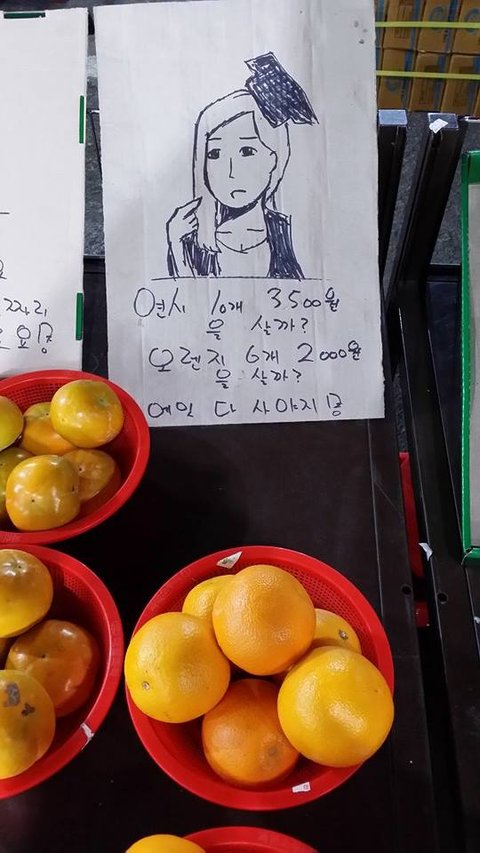 짜리
연시 10개 3500원
을 살까?
오렌지 6개 2000원
을 살까?
에잇 다 사야지롱